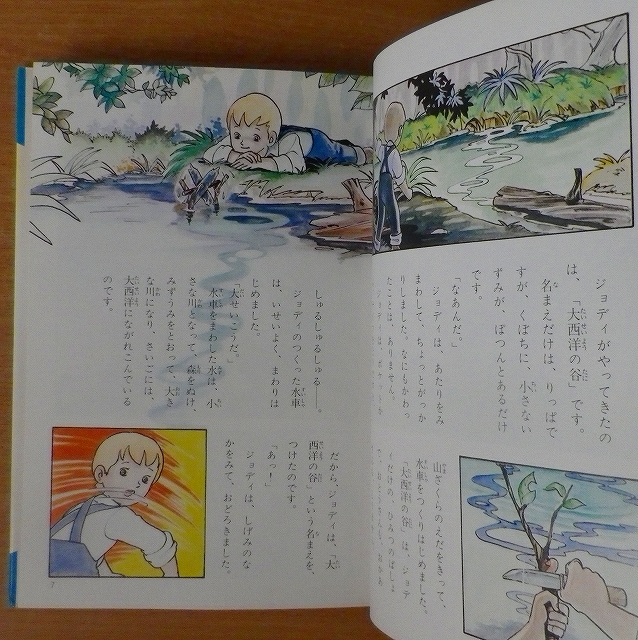 ジョディがやってきたの
は、「大西洋の谷」です。
名まえだけは、りっぱで
すが、くぼちに、小さない
ずみが、ぽつんとあるだけ
です。
「なあんだ。」
ジョディは、あたりをみ
まわして、ちょっとがっか
りしました。なにもかわっ
たことは、ありません。
山ざくらのえだをきって、
水車をつくりはじめました。
「大西洋の谷」は、ジョデ
しゅるしゅるしゅる——。
ジョディのつくった水車
は、いせいよく、まわりは
じめました。
「大せいこうだ。」
水車をまわした水は、小
さな川となって、森をぬけ、
みずうみをとおって、大き
な川になり、さいごには、
大西洋にながれこんでいる
のです。
だから、ジョディは、「大
西洋の谷」という名まえを、
つけたのです。
「あっ!」
ジョディは、しげみのな
かをみて、おどろきました。